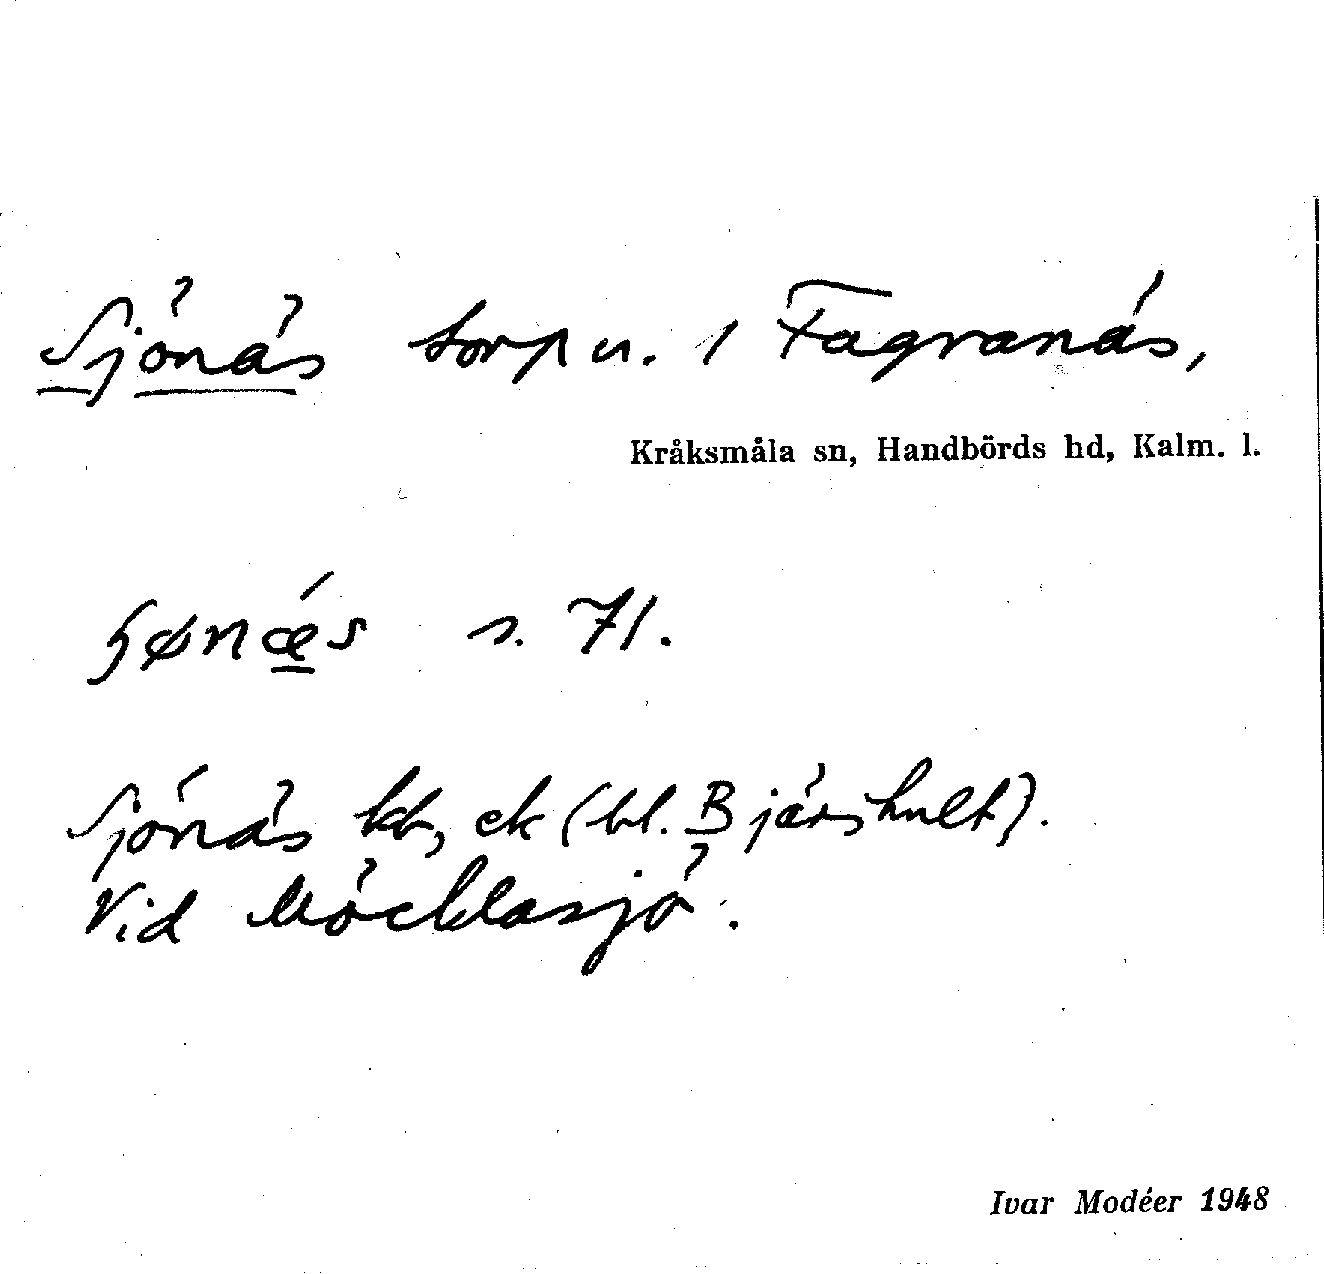 Sjönäs torp u. / Fagranäs,
Kråksmåla sn, Handbörds hd, Kalm. l.
ɧønǽs s. 71.
Sjönäs kb, ek (bl. Bjärshult).
Vid Möcklasjö.
Ivar Modéer 1948